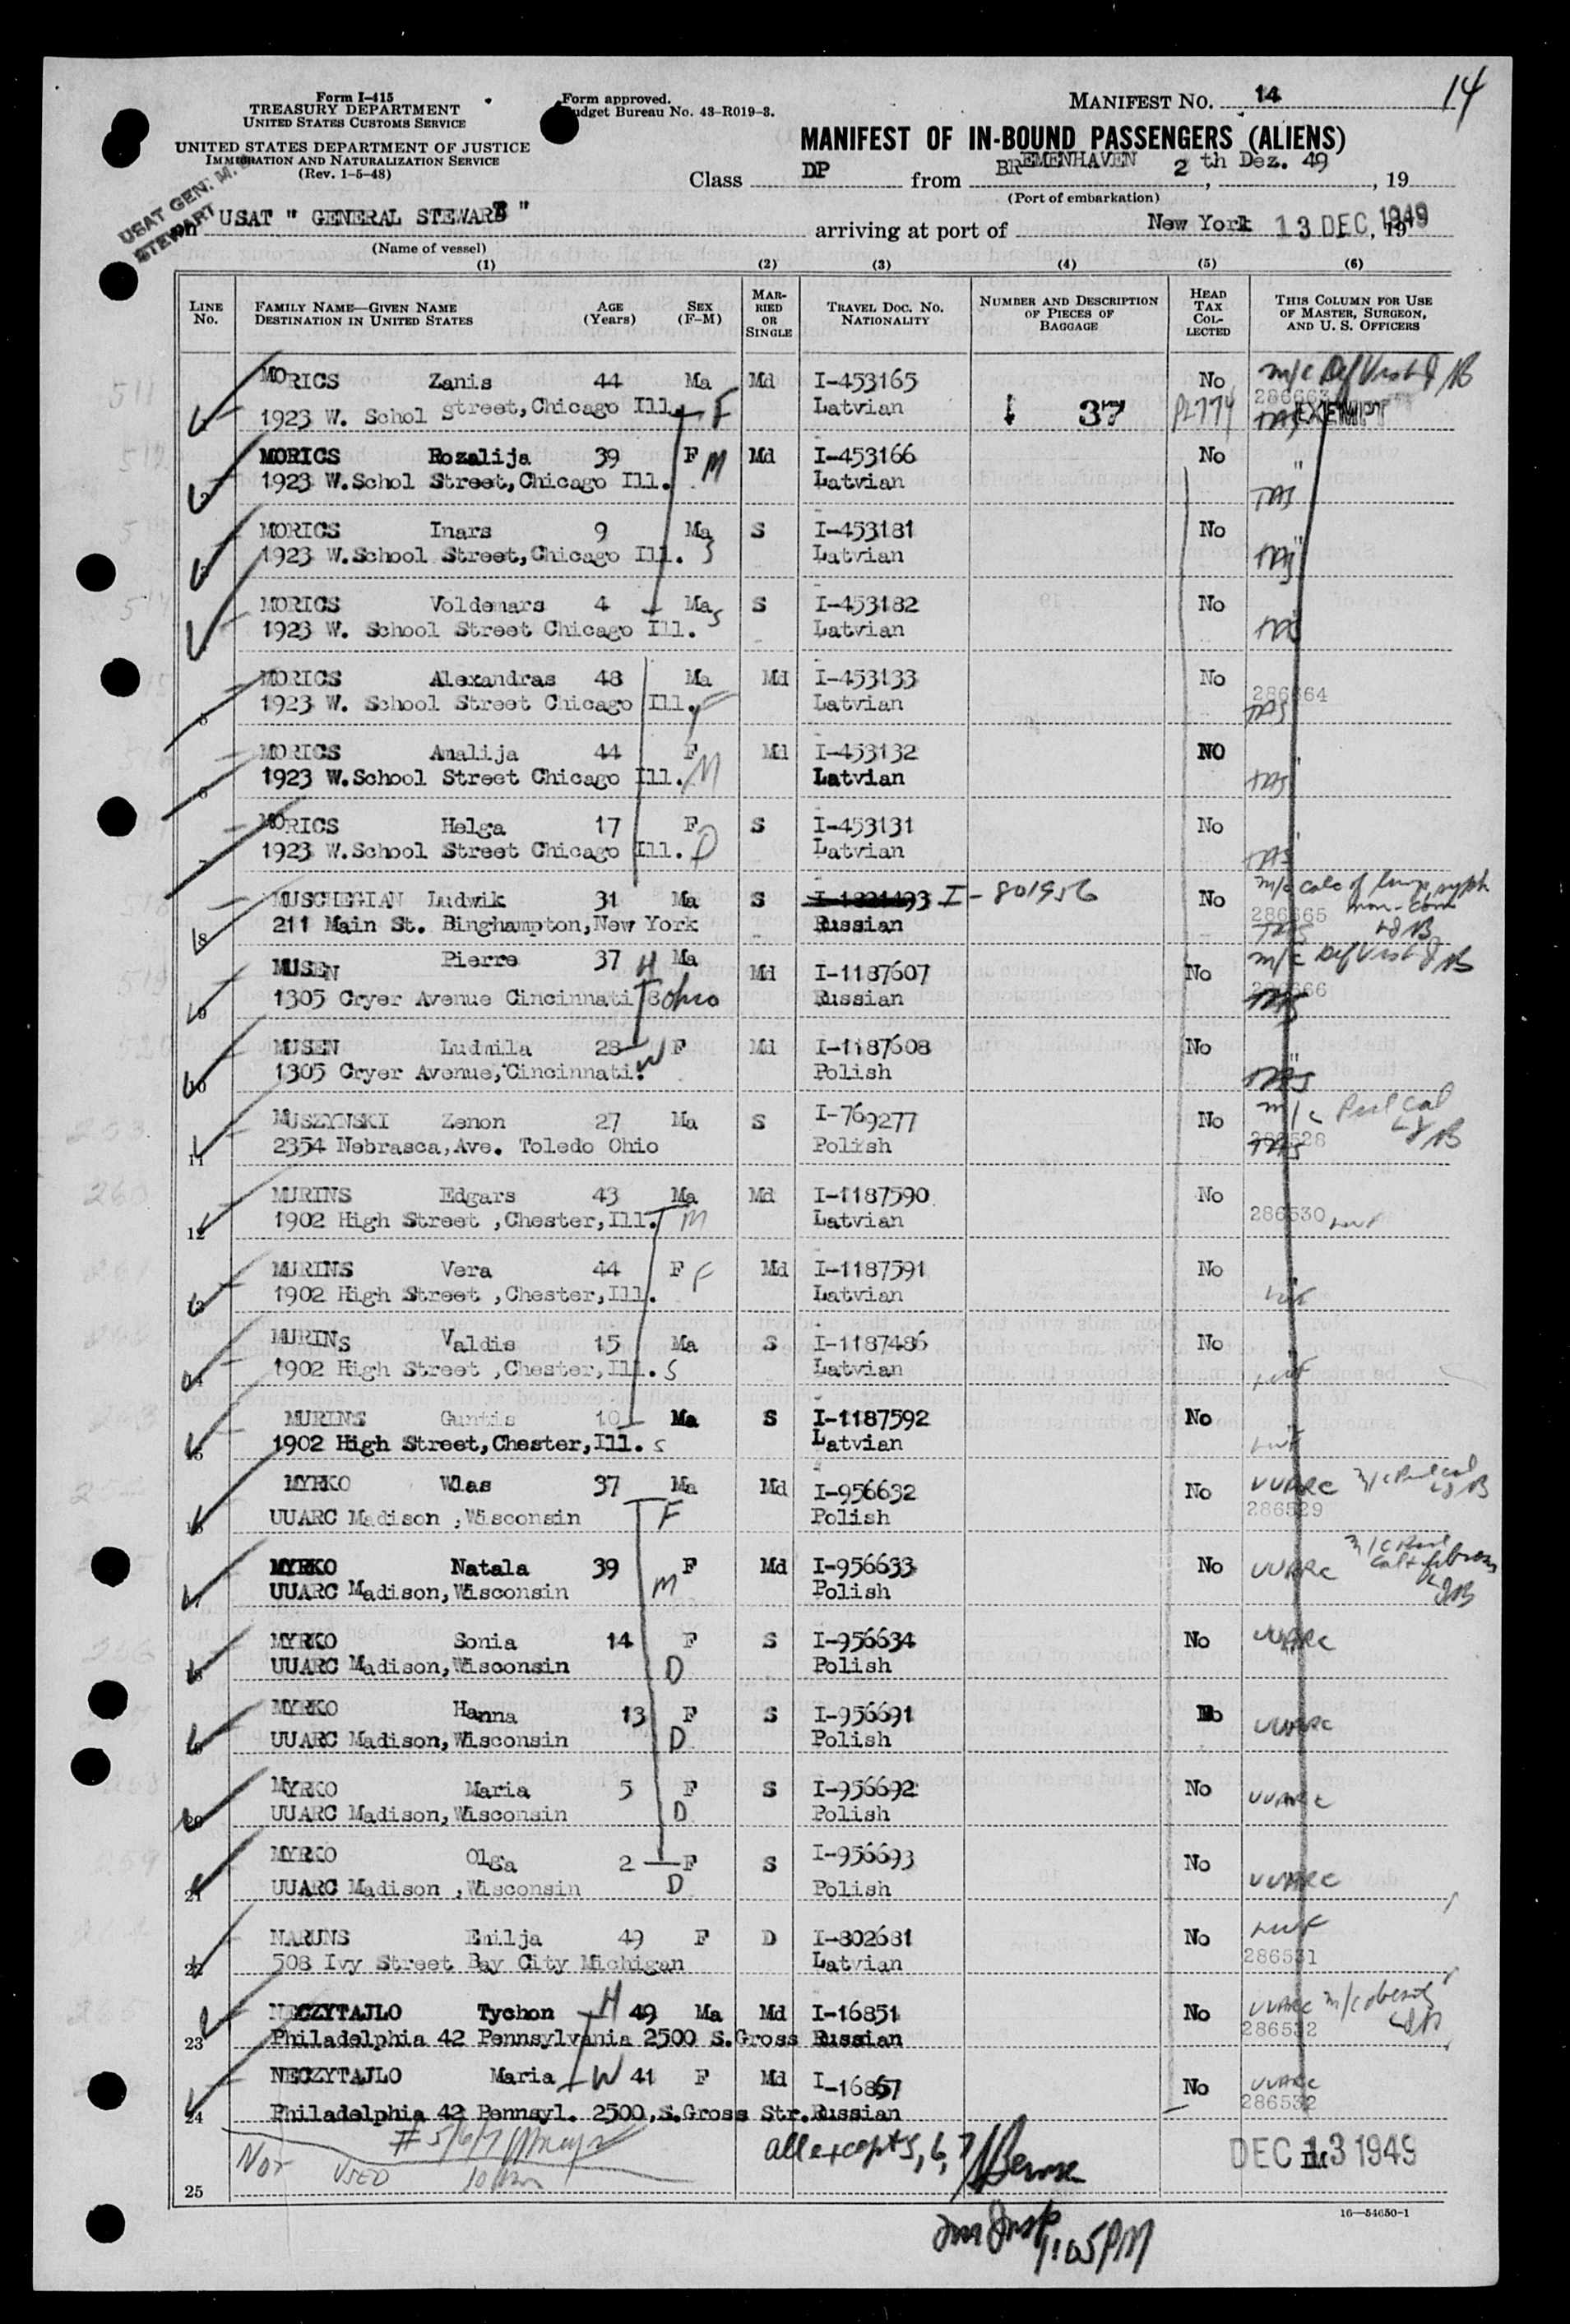 Form I-415
TREASURY DEPARTMENT
UNITED STATES CUSTOMS SERVICE
UNITED STATES DEPARTMENT OF JUSTICE
IMMIGRATION AND NATURALIZATION SERVICE
(Rev. 1-5-48)
Form approved.
Budget Bureau No. 43-R019-3.
MANIFEST NO. 14
14
MANIFEST OF IN-BOUND PASSENGERS (ALIENS)
Class DP from BREMENHAVEN 2 th Dez. 49, 19
(Port of embarkation)
USAT GEN. M. STEWART
on USAT " GENERAL STEWART "
(Name of vessel)
arriving at port of New York 13 DEC, 1949
(1) (2) (3) (4) (5) (6)
LINE No. FAMILY NAME—GIVEN NAME DESTINATION IN UNITED STATES AGE (Years) SEX (F-M) MARRIED OR SINGLE TRAVEL DOC. NO. NATIONALITY NUMBER AND DESCRIPTION OF PIECES OF BAGGAGE HEAD TAX COLLECTED THIS COLUMN FOR USE OF MASTER, SURGEON, AND U. S. OFFICERS
MORICS Zanis 44 Ma Md I-453165 No m/c Def Vis
1923 W. Schol Street, Chicago Ill. F Latvian 37 PL774 286663 EXEMPT
MORICS Rozalija 39 F M Md I-453166 No "
1923 W.Schol Street, Chicago Ill. Latvian
MORICS Inars 9 Ma S I-453181 No "
1923 W.School Street, Chicago Ill. S Latvian
MORICS Voldemars 4 Ma S I-453182 No
1923 W. School Street Chicago Ill. S Latvian
5 MORICS Alexandras 48 Ma Md I-453133 No
1923 W. School Street Chicago Ill. F Latvian 286664
6 MORICS Amalija 44 F Md I-453132 NO
1923 W.School Street Chicago Ill. M Latvian
7 MORICS Helga 17 F S I-453131 No
1923 W.School Street Chicago Ill. D Latvian
8 MUSCHEGIAN Ludwik 31 Ma S I-1821493 I-801956 No
211 Main St. Binghampton, New York Russian 286665
9 MUSEN Pierre 37 H Ma Md I-1187607 No m/c Def Vis
1305 Cryer Avenue Cincinnati Ohio Russian 286666
10 MUSEN Ludmila 28 W F Md I-1187608 No "
1305 Cryer Avenue, Cincinnati. Polish
11 MUSZYNSKI Zenon 27 Ma S I-769277 No m/c Pul cal
2354 Nebrasca, Ave. Toledo Ohio Polish 286528
12 MURINS Edgars 43 Ma Md I-1187590 No
1902 High Street ,Chester, Ill. M Latvian 286530 LWF
MURINS Vera 44 F F Md I-1187591 No
1902 High Street ,Chester, Ill. Latvian LWF
MURINS Valdis 15 Ma S I-1187486 No
1902 High Street ,Chester, Ill. S Latvian LWF
MURINS Guntis 10 Ma S I-1187592 No
1902 High Street, Chester, Ill. S Latvian LWF
MYRKO Wlas 37 Ma Md I-956632 No UUARC m/c Pul cal
UUARC Madison ,Wisconsin F Polish 286529
MYRKO Natala 39 F Md I-956633 No UUARC
UUARC Madison, Wisconsin M Polish
MYRKO Sonia 14 F S I-956634 No UUARC
UUARC Madison, Wisconsin D Polish
MYRKO Hanna 13 F S I-956691 No UUARC
UUARC Madison, Wisconsin D Polish
20 MYRKO Maria 5 F S I-956692 No UUARC
UUARC Madison, Wisconsin D Polish
21 MYRKO Olga 2 F S I-956693 No UUARC
UUARC Madison ,Wisconsin D Polish
22 NARUNS Emilja 49 F D I-802681 No LWF
508 Ivy Street Bay City Michigan Latvian 286531
23 NECZYTAJLO Tychon H 49 Ma Md I-16851 No UUARC m/c obesity
Philadelphia 42 Pennsylvania 2500 S.Gross Russian 286532
24 NECZYTAJLO Maria W 41 F Md I-16857 No UUARC
Philadelphia 42 Pennsyl. 2500, S.Gross Str. Russian 286532
25 NOT USED # 5/6/7
all except 5, 6, 7
DEC 13 1949
Imm Insp
1:05 PM
16—54650-1